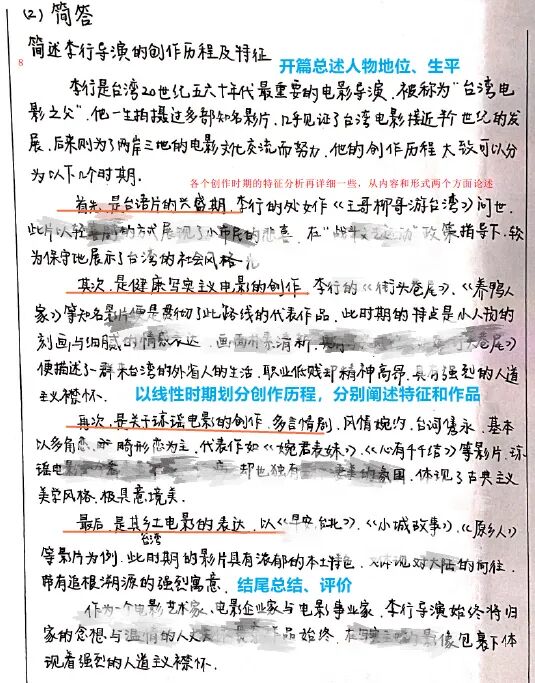 (2) 简答
8
简述李行导演的创作历程及特征
开篇总述人物地位、生平
李行是台湾20世纪五六十年代最重要的电影导演,被称为“台湾电
影之父”。他一生拍摄过多部知名影片,几乎见证了台湾电影接近半个世纪的发
展,后来则为了两岸三地的电影文化交流而努力,他的创作历程大致可以分
为以下几个时期。
各个创作时期的特征分析再详细一些,从内容和形式两个方面论述
首先,是台语片的兴盛期,李行的处女作《王哥柳哥游台湾》问世,
此片以轻 的方式展现了小市民的悲喜,在“战斗 ”政策指导下,较
为保守地展示了台湾的社会风格
其次,是健康写实主义电影的创作,李行的《街头巷尾》、《养鸭人
家》等知名影片便是贯彻了此路线的代表作品,此时期的特点是小人物的
刻画与细腻的情感表达,画面 清新, 头巷尾》
便描述了一群来台湾的外省人的生活,职业低贱却精神高尚,具有强烈的人道
主义襟怀。
以线性时期划分创作历程,分别阐述特征和作品
再次,是关于琼瑶电影的创作,多言情剧,风情婉约,台词隽永,基本
以多角恋, 畸形恋为主,代表作如《婉君表妹》、《心有千千结》等影片,琼
瑶电影 却也独有 的氛围,体现了古典主义
美学风格,极具意境美。
最后,是其乡土电影的表达,以《早安台北》、《小城故事》、《原乡人》
台湾
等影片为例,此时期的影片具有浓郁的本土特色, 体现对大陆的向往,
带有追根溯源的强烈寓意。
结尾总结、评价
作为一个电影艺术家、电影企业家与电影事业家,李行导演始终将归
家的念想与温情的人文 作品始终,在写实主 影像包裹下体
现着强烈的人道主义襟怀。